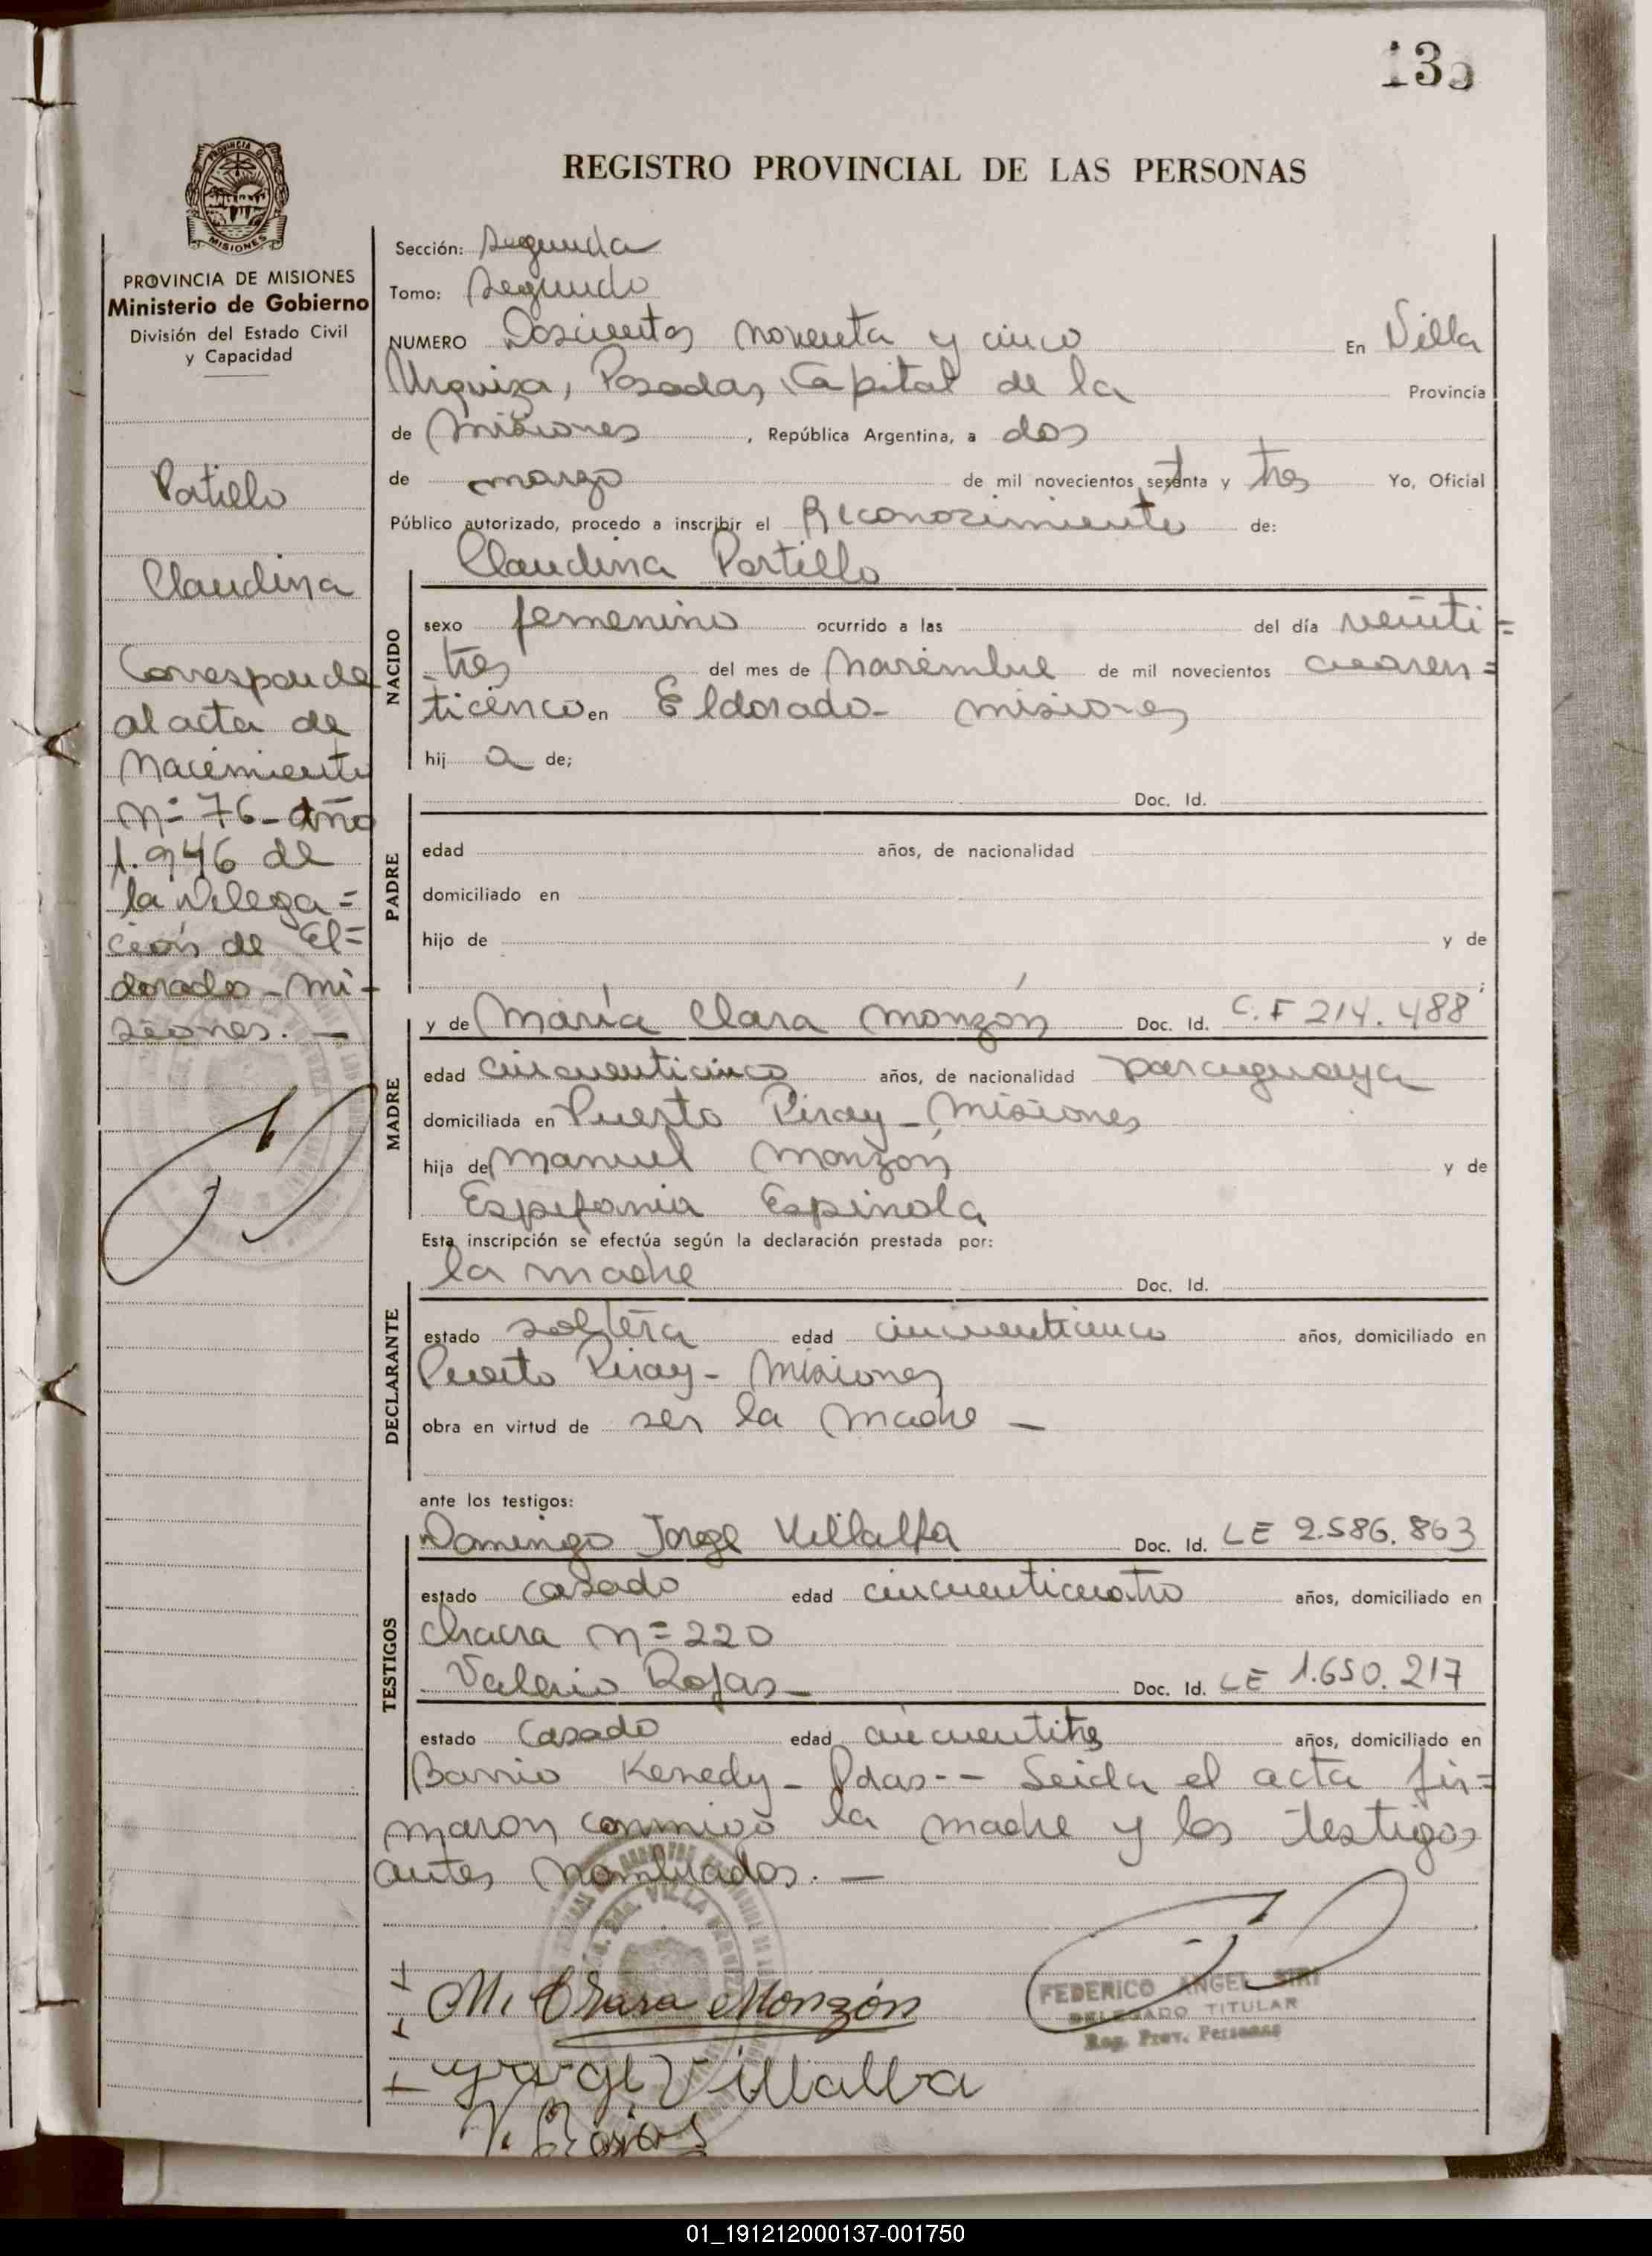 REGISTRO PROVINCIAL DE LAS PERSONAS
MISIONES
PROVINCIA DE MISIONES
Ministerio de Gobierno
División del Estado Civil
y Capacidad
Portillo
Claudina
Corresponde
al acta de
Nacimiento
Nº 76 - Año
1.946 de
la Delega=
ción de El=
dorado - Mi-
siones. —
Sección: Segunda
Tomo: Segundo
NUMERO Doscientos noventa y cinco En Villa
Urquiza, Posadas, Capital de la Provincia
de Misiones, República Argentina, a dos
de marzo de mil novecientos setenta y tres Yo, Oficial
Público autorizado, procedo a inscribir el Reconocimiento de:
Claudina Portillo
NACIDO
sexo femenino ocurrido a las del día veinti=
tres del mes de Noviembre de mil novecientos cuaren=
ticinco en Eldorado - Misiones
hij a de;
Doc. Id.
PADRE
edad años, de nacionalidad
domiciliado en
hijo de y de
;
MADRE
y de María Clara Monzón Doc. Id. C.F 214.488
edad cincuenticinco años, de nacionalidad paraguaya
domiciliada en Puerto Piray - Misiones
hija de Manuel Monzón y de
Espifania Espinola
Esta inscripción se efectúa según la declaración prestada por:
la madre Doc. Id.
DECLARANTE
estado soltera edad cincuenticinco años, domiciliado en
Puerto Piray - Misiones
obra en virtud de ser la madre —
ante los testigos:
Domingo Jorge Villalba Doc. Id. LE 2.586.863
TESTIGOS
estado casado edad cincuenticuatro años, domiciliado en
Chacra Nº 220
Valerio Rojas - Doc. Id. LE 1.650.217
estado Casado edad cincuentitres años, domiciliado en
Barrio Kenedy - Pdas -- Leida el acta fir=
maron conmigo la madre y los testigos
antes nombrados. —
M. Clara Monzón
FEDERICO ANGEL SIRI
DELEGADO TITULAR
Reg. Prov. Personas
Jorge Villalba
V. Rojas
01_191212000137-001750